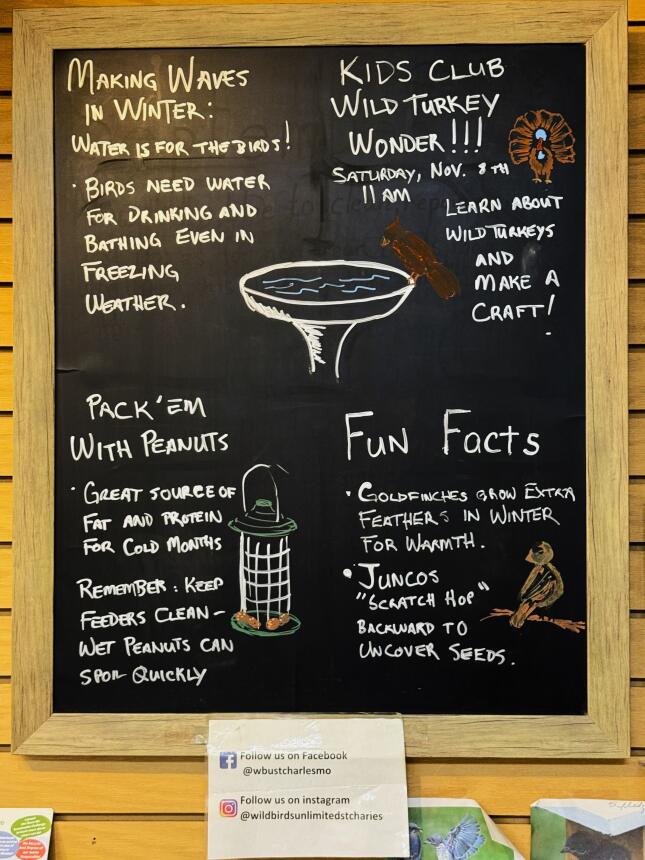 MAKING WAVES
IN WINTER:
WATER IS FOR THE BIRDS!
· BIRDS NEED WATER
FOR DRINKING AND
BATHING EVEN IN
FREEZING
WEATHER.
KIDS CLUB
WILD TURKEY
WONDER!!!
SATURDAY, NOV. 8TH
11 AM
LEARN ABOUT
WILD TURKEYS
AND
MAKE A
CRAFT!
PACK 'EM
WITH PEANUTS
· GREAT SOURCE OF
FAT AND PROTEIN
FOR COLD MONTHS
REMEMBER: KEEP
FEEDERS CLEAN-
WET PEANUTS CAN
SPOIL QUICKLY
FUN FACTS
· GOLDFINCHES GROW EXTRA
FEATHERS IN WINTER
FOR WARMTH.
· JUNCOS
"SCRATCH HOP"
BACKWARD TO
UNCOVER SEEDS.
Follow us on Facebook
@wbustcharlesmo
Follow us on instagram
@wildbirdsunlimitedstcharies